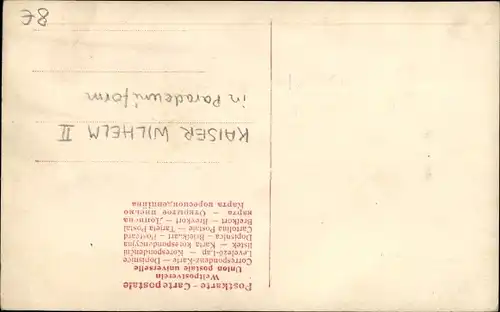 Postkarte - Carte postale
Weltpostverein
Union postale universelle
Correspondenz-Karte — Dopisnice
Levelező-Lap — Korespondenční
lístek — Karta korespondencyjna
Dopisnica — Briefkaart — Postcard
Cartolina Postale — Tarjeta Postal
Brefkort — Brevkort —
карта — Открытое письмо
Карта
KAISER WILHELM II
in Paradeuniform
8€